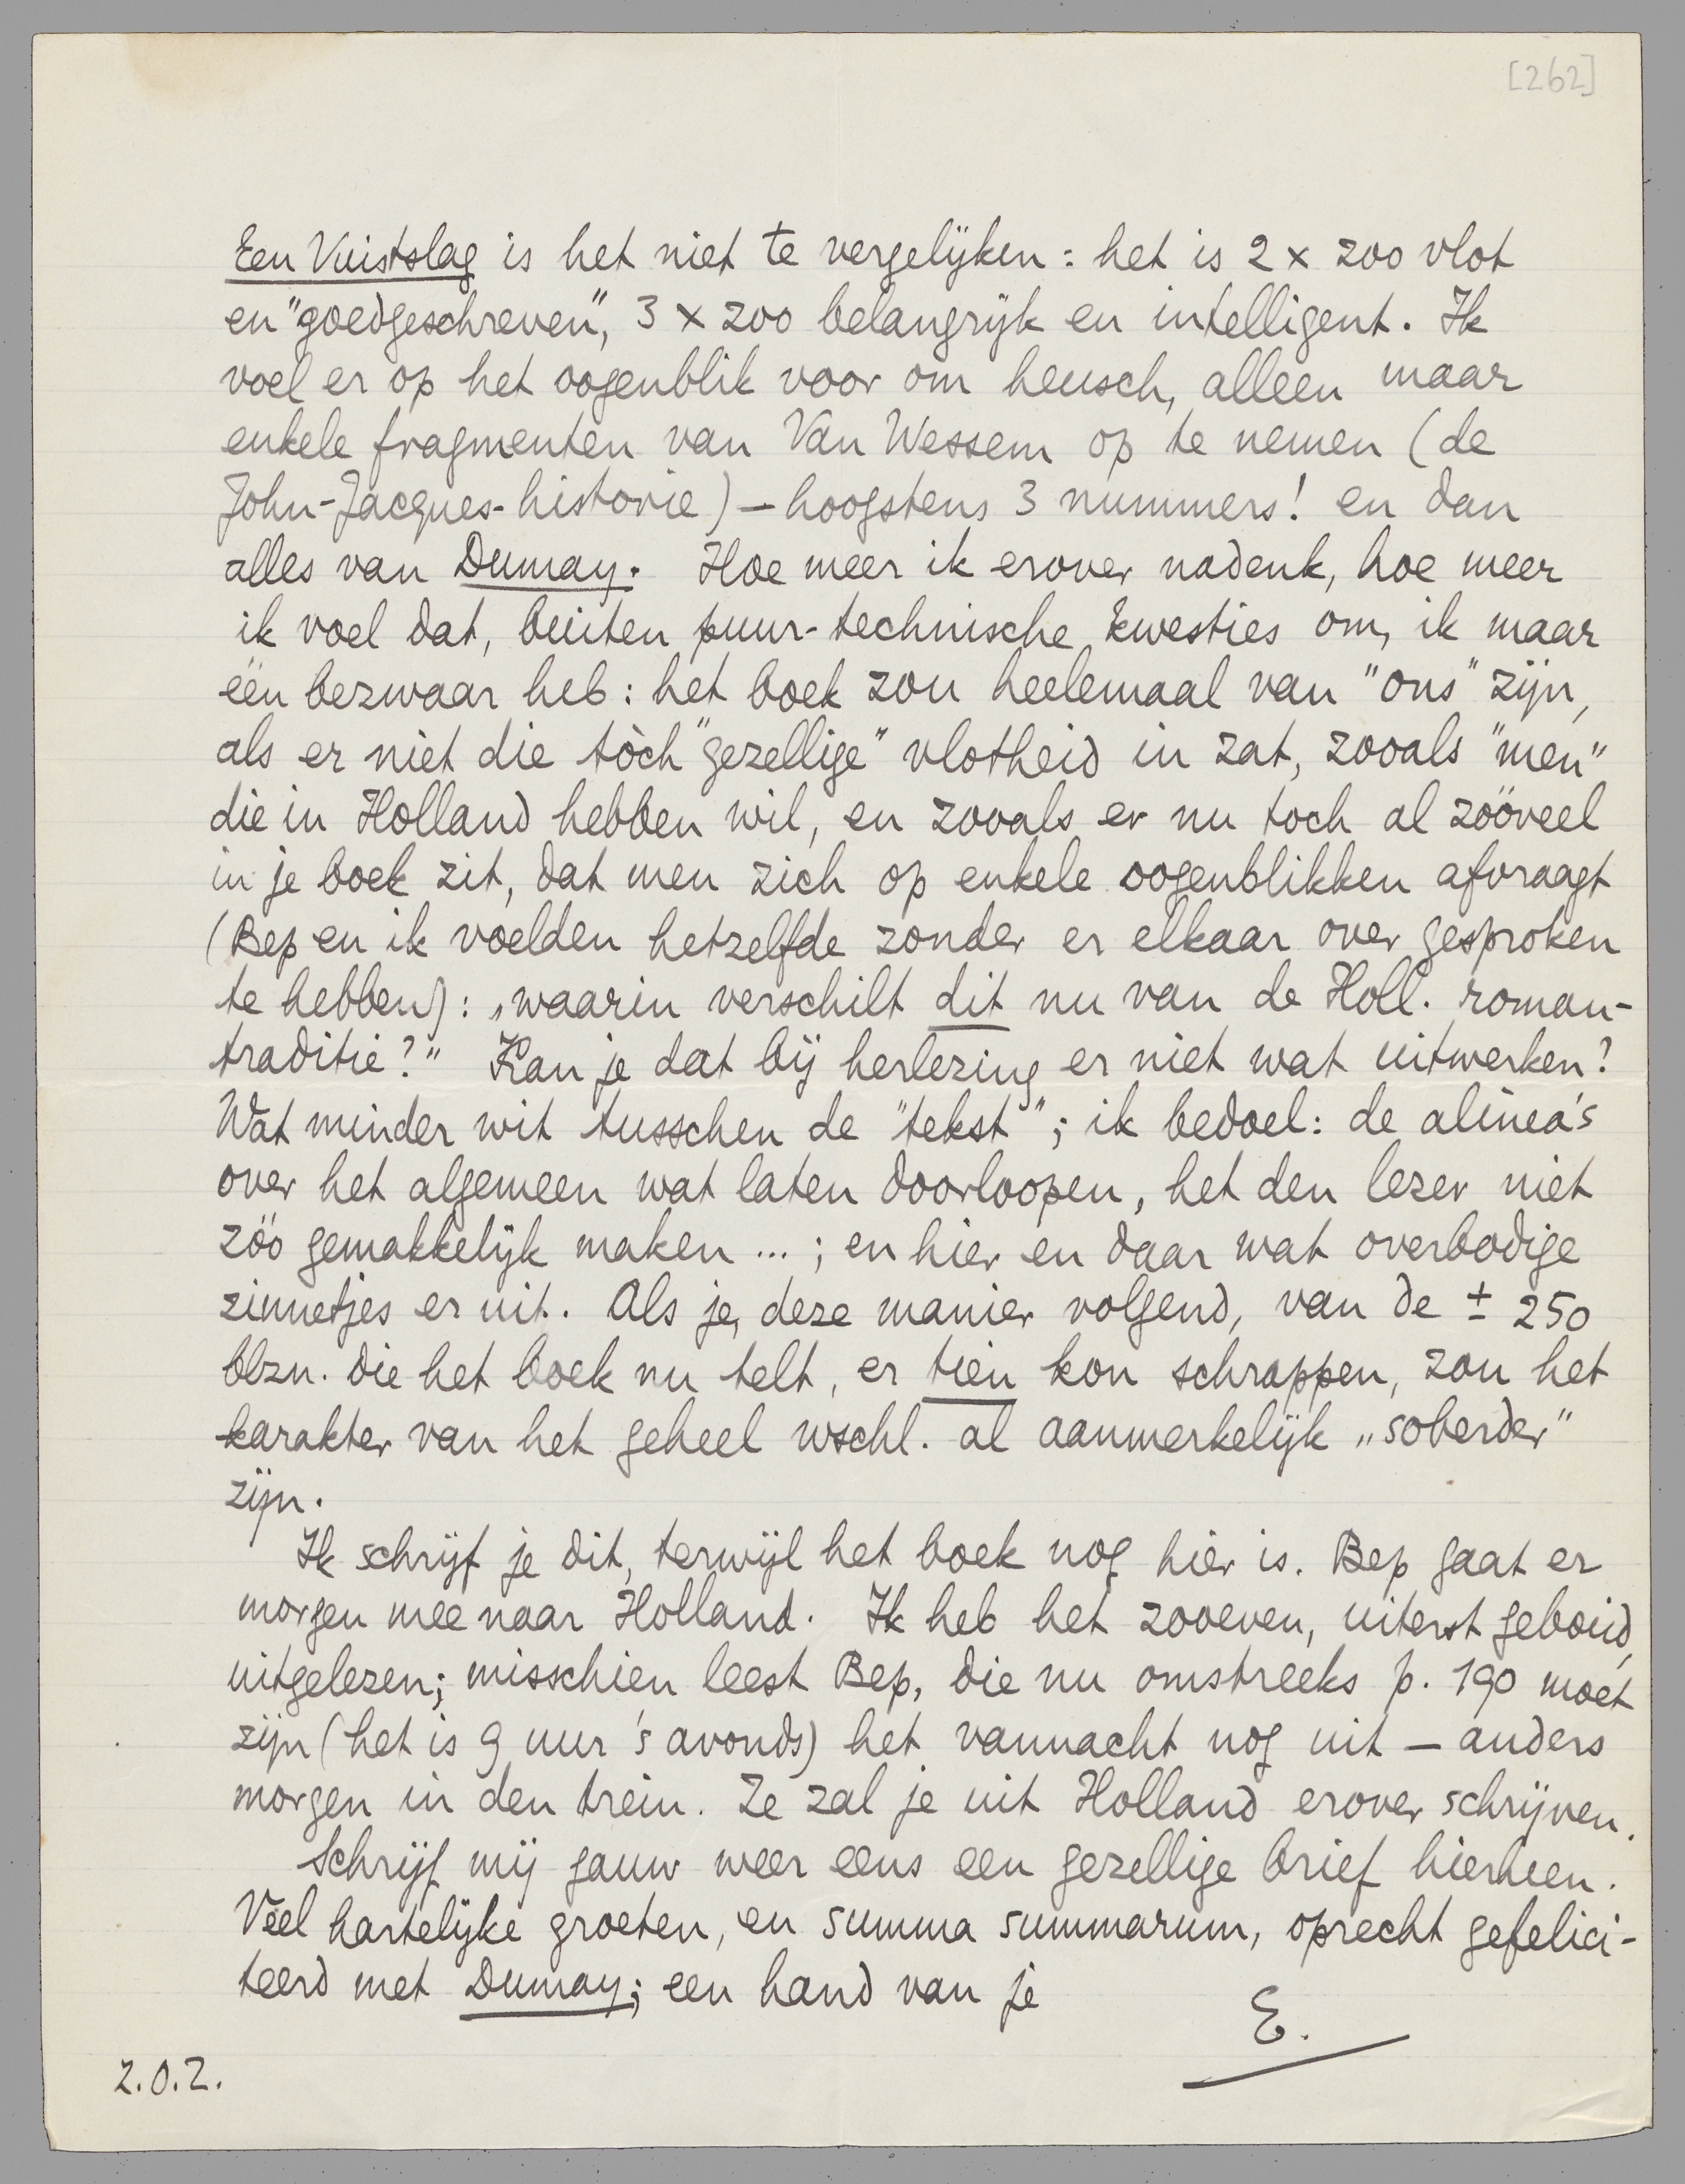 [262]
Een Vuistslag is het niet te vergelijken: het is 2 x zoo vlot
en "goedgeschreven", 3 x zoo belangrijk en intelligent. Ik
voel er op het oogenblik voor om heusch, alleen maar
enkele fragmenten van Van Wessem op te nemen (de
John-Jacques-historie) – hoogstens 3 nummers! en dan
alles van Dumay. Hoe meer ik erover nadenk, hoe meer
ik voel dat, buiten puur-technische kwesties om, ik maar
één bezwaar heb: het boek zou heelemaal van "ons" zijn,
als er niet die tòch "gezellige" vlotheid in zat, zooals "men"
die in Holland hebben wil, en zooals er nu toch al zóóveel
in je boek zit, dat men zich op enkele oogenblikken afvraagt
(Bep en ik voelden hetzelfde zonder er elkaar over gesproken
te hebben): „waarin verschilt dit nu van de Holl. roman-
traditie?" Kan je dat bij herlezing er niet wat uitwerken?
Wat minder wit tusschen de "tekst"; ik bedoel: de alinea's
over het algemeen wat laten doorloopen, het den lezer niet
zóó gemakkelijk maken ...; en hier en daar wat overbodige
zinnetjes er uit. Als je, deze manier volgend, van de ± 250
blzn. die het boek nu telt, er tien kon schrappen, zou het
karakter van het geheel wschl. al aanmerkelijk „soberder"
zijn.
Ik schrijf je dit, terwijl het boek nog hier is. Bep gaat er
morgen mee naar Holland. Ik heb het zooeven, uiterst geboeid,
uitgelezen; misschien leest Bep, die nu omstreeks p. 190 moet
zijn (het is 9 uur 's avonds) het vannacht nog uit – anders
morgen in den trein. Ze zal je uit Holland erover schrijven.
Schrijf mij gauw weer eens een gezellige brief hierheen.
Veel hartelijke groeten, en summa summarum, oprecht gefelici-
teerd met Dumay; een hand van je
E.
Z.O.Z.